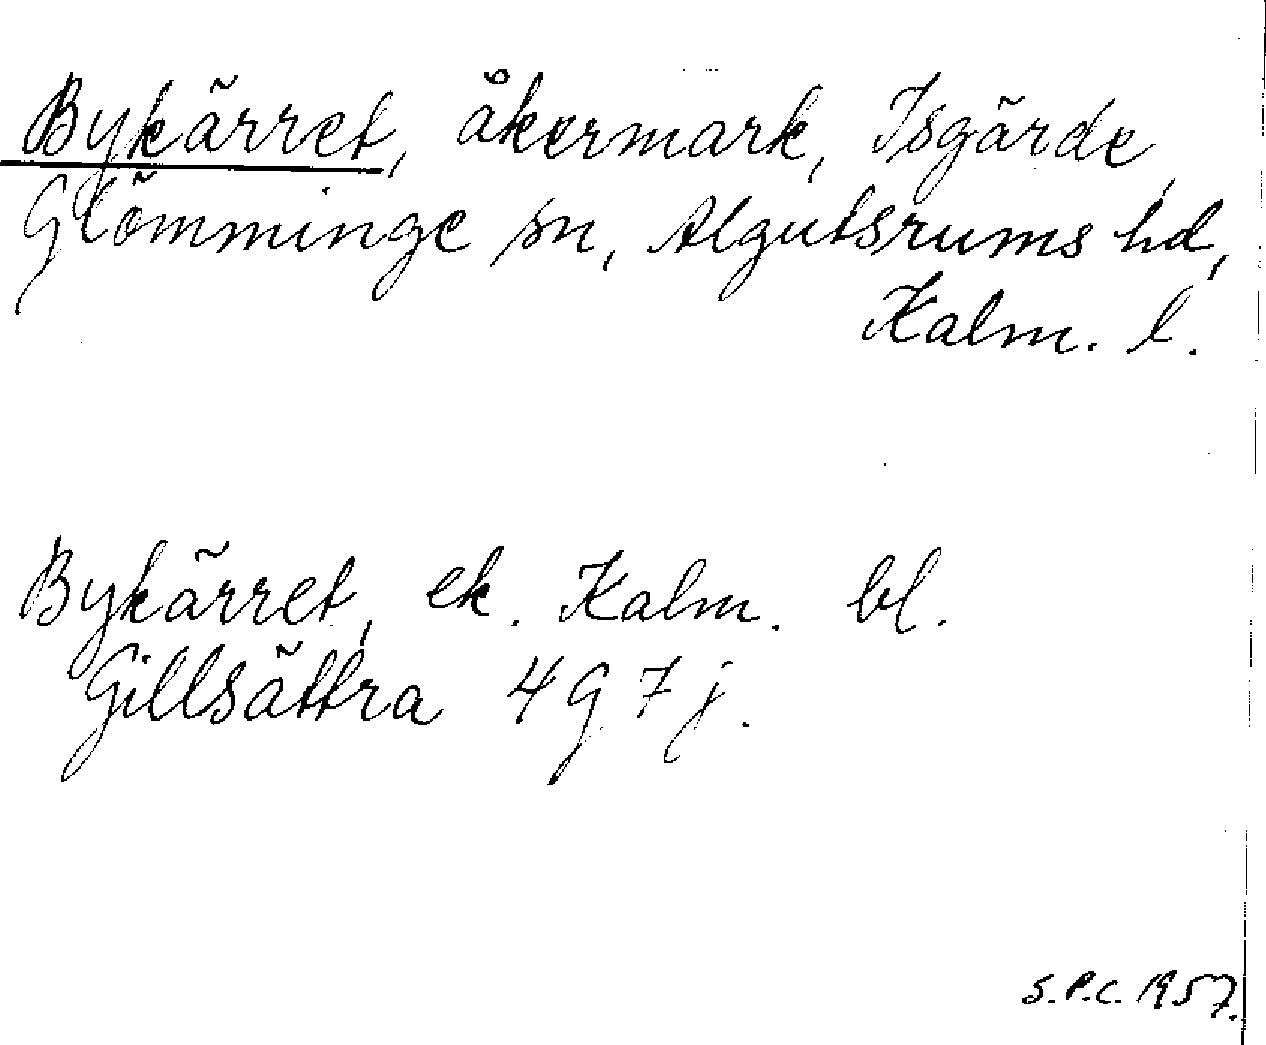 Bykärret, åkermark, Isgärde,
Glömminge sn, Algutsrums hd,
Kalm. l.
Bykärret, ek. Kalm. bl.
Gillsättra 4 G 7 j.
S.P.C. 1957.